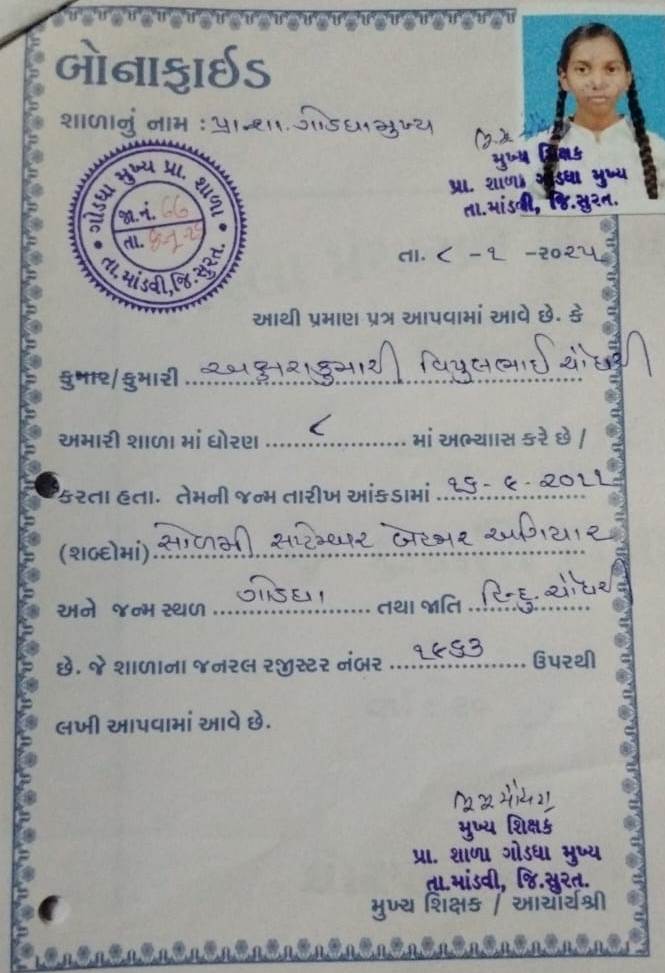 બોનાફાઈડ
શાળાનું નામ : પ્રા.શા. ગોડધા મુખ્ય
મુખ્ય શિક્ષક
પ્રા. શાળા ગોડધા મુખ્ય
તા.માંડવી, જિ.સુરત.
ગોડધા મુખ્ય પ્રા. શાળા
જા.નં. 66
તા.
તા.માંડવી, જિ.સુરત.
તા. ૮ - ૧ - ૨૦૨૫
આથી પ્રમાણ પત્ર આપવામાં આવે છે. કે
કુમાર/કુમારી અક્ષરાકુમારી વિપુલભાઈ ચૌધરી
અમારી શાળા માં ધોરણ ૮ માં અભ્યાસ કરે છે /
કરતા હતા. તેમની જન્મ તારીખ આંકડામાં ૧૬ - ૯ - ૨૦૧૧
(શબ્દોમાં) સોળમી સપ્ટેમ્બર બેહજાર અગિયાર
અને જન્મ સ્થળ ગોડધા તથા જાતિ હિન્દુ ચૌધરી
છે. જે શાળાના જનરલ રજીસ્ટર નંબર ૧૯૬૩ ઉપરથી
લખી આપવામાં આવે છે.
મુખ્ય શિક્ષક
પ્રા. શાળા ગોડધા મુખ્ય
તા.માંડવી, જિ.સુરત.
મુખ્ય શિક્ષક / આચાર્યશ્રી